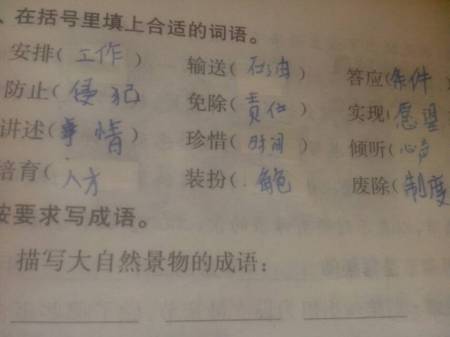 、在括号里填上合适的词语。
安排(工作) 输送(石油) 答应(条件)
防止(侵犯) 免除(责任) 实现(愿望)
讲述(事情) 珍惜(时间) 倾听(心声
培育(人才 装扮( 废除(制度
按要求写成语。
描写大自然景物的成语: